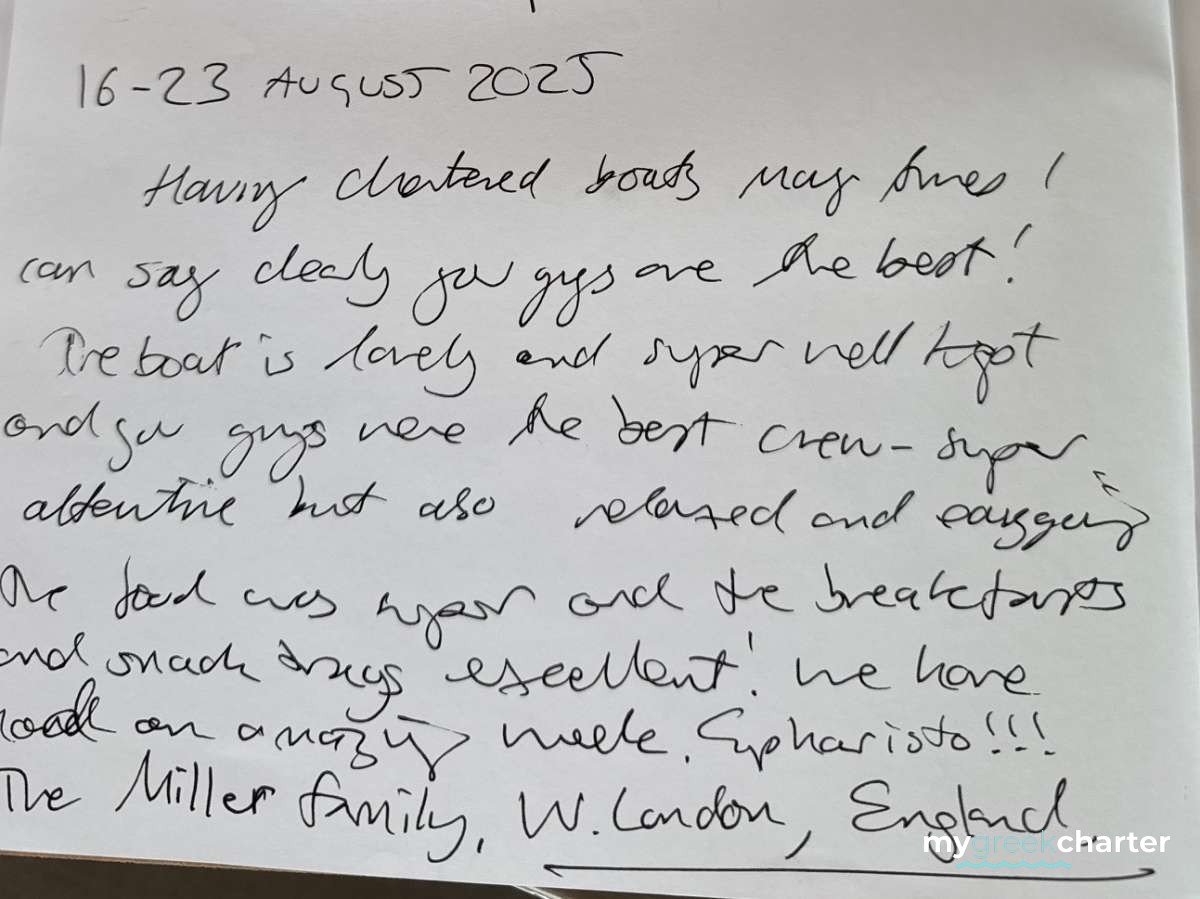 16-23 AUGUST 2025
Having chartered boats many times I
can say clearly you guys are the best!
The boat is lovely and super well kept
and you guys were the best crew - super
attentive but also relaxed and easygoing
The food was super and the breakfasts
and snack trays excellent! We have
had an amazing week. Eupharisto!!!
The Miller family, W. London, England.
mygreekcharter